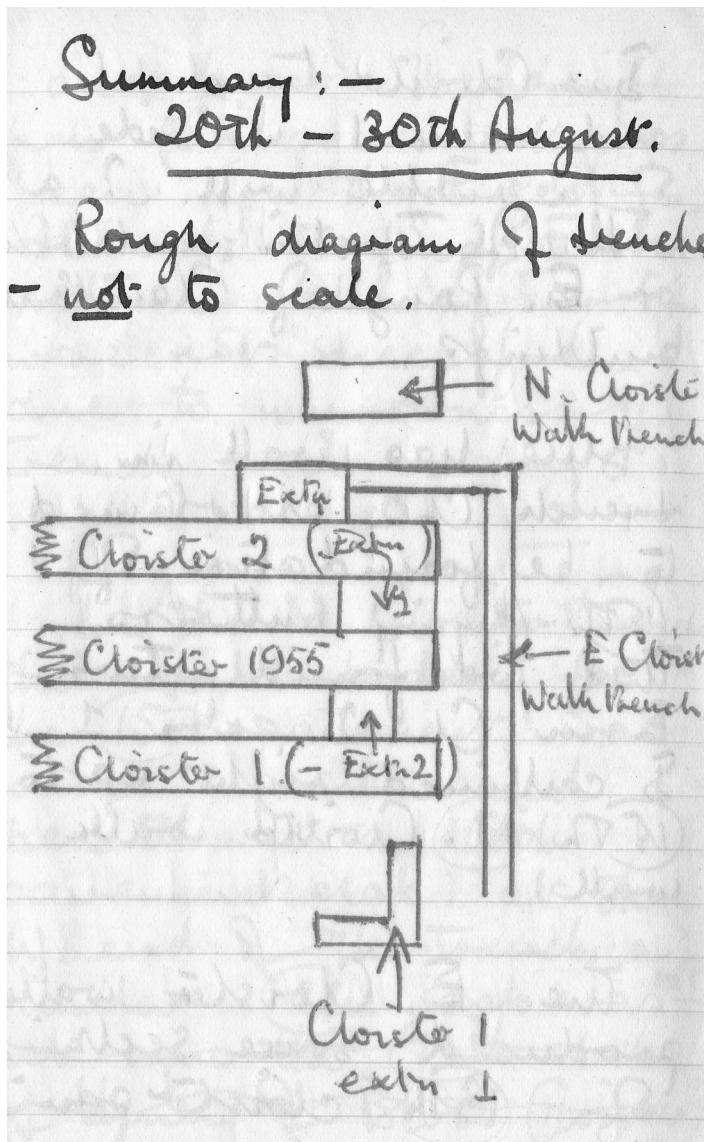 Summary : –
20th – 30th August.
Rough diagram of trenche
– not to scale.
N. Cloiste
Walk Trench
Extn.
Cloister 2 (Extn)
1
Cloister 1955
E Cloist
Walk Trench
Cloister 1 (– Extn 2)
Cloister 1
extn 1